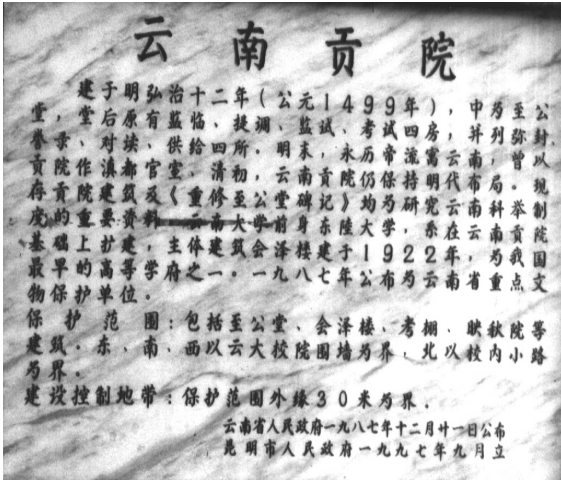 云南贡院
建于明弘治十二年(公元1499年),中为至公
堂,堂后原有监临、提调、监试、考试四房,并列弥封
誊录、对读、供给四所。明末,永历帝流寓云南,曾以
贡院作滇都官室。清初,云南贡院仍保持明代布局。现
存贡院建筑及《重修至公堂碑记》均为研究云南科举制
度的重要资料。云南大学前身东陆大学,系在云南贡院
基础上扩建,主体建筑会泽楼建于1922年,为我国
最早的高等学府之一。一九八七年公布为云南省重点文
物保护单位。
保护范围:包括至公堂、会泽楼、考棚、映秋院等
建筑。东、南、西以云大校院围墙为界,北以校内小路
为界。
建设控制地带:保护范围外缘30米为界.
云南省人民政府一九八七年十二月廿一日公布
昆明市人民政府一九九七年九月立